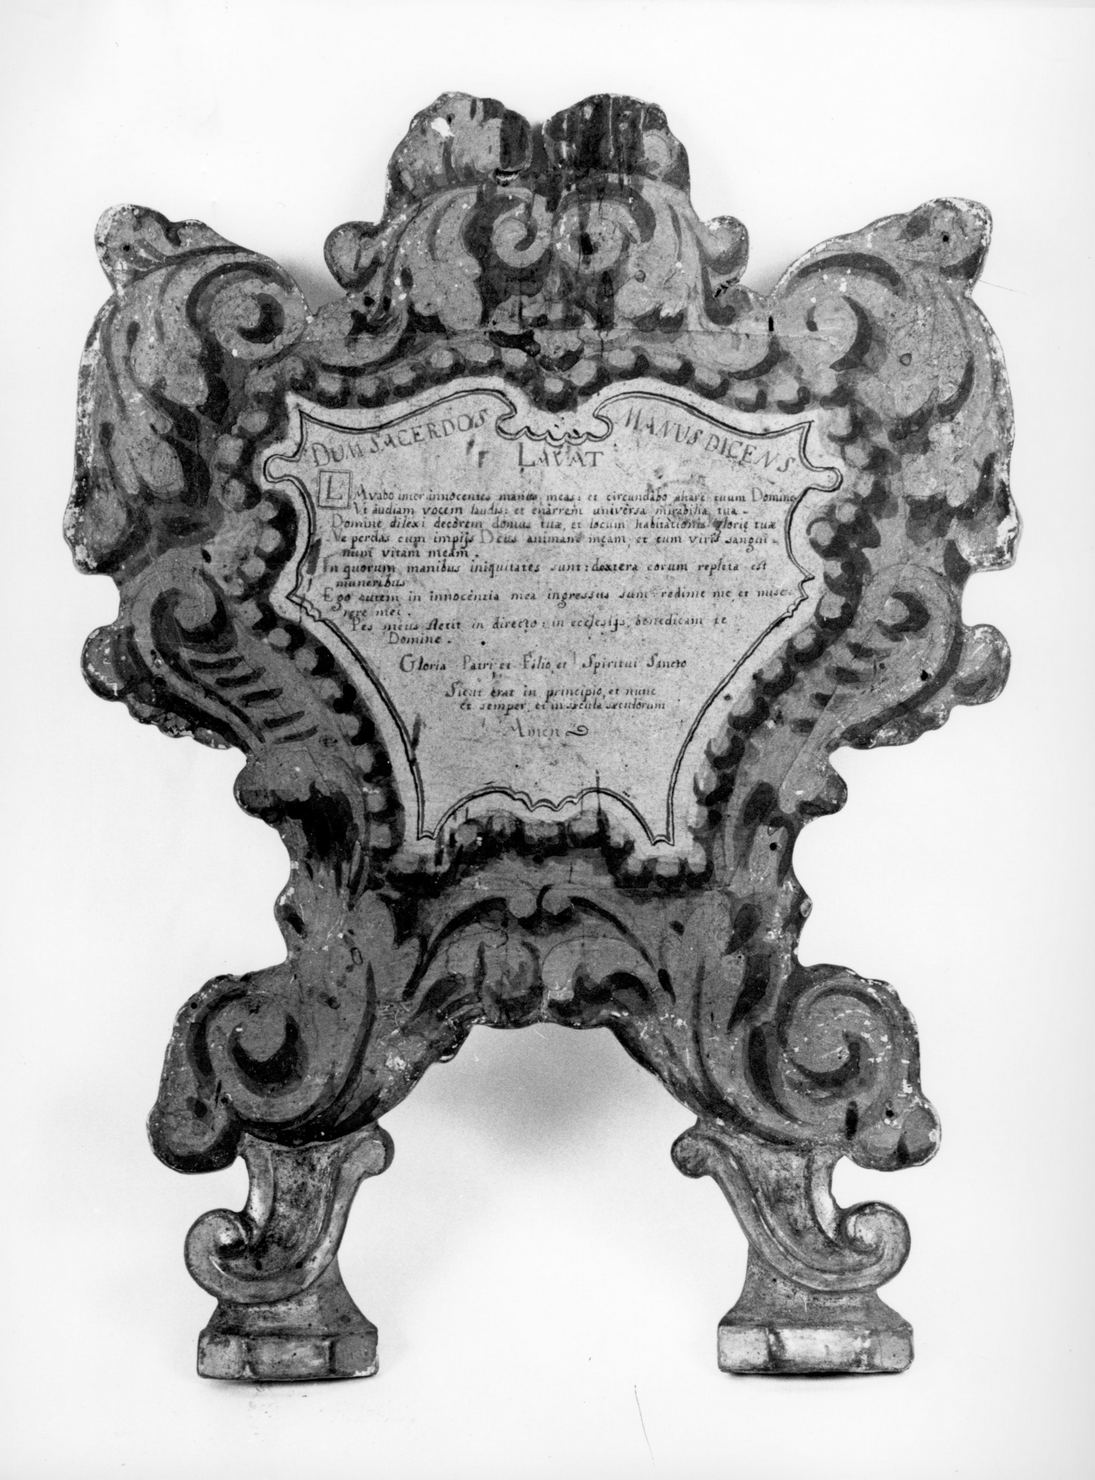 DUM SACERDOS MANUS DICENS
LAVAT
LAvabo inter innocentes manus meas: et circundabo altare tuum Domine
Ut audiam vocem laudis: et enarrem universa mirabilia tua.
Domine dilexi decorem domus tuæ, et locum habitationis glorie tuæ
Ne perdas cum impijs Deus animam meam, et cum viris sangui-
num vitam meam.
In quorum manibus iniquitates sunt: dextera eorum repleta est
muneribus
Ego autem in innocentia mea ingressus sum: redime me, et mise-
rere mei.
Pes meus stetit in directo: in ecclesijs, benedicam te
Domine.
Gloria Patri et Filio, et Spiritui Sancto
Sicut erat in principio, et nunc
et semper, et in sæcula sæculorum
Amen